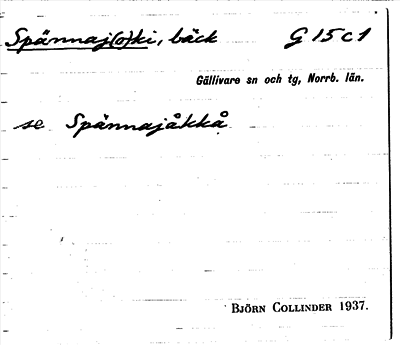 Spännaj(o)ki, bäck G 15 c 1
Gällivare sn och tg, Norrb. län.
se Spännajåkkå
BJÖRN COLLINDER 1937.